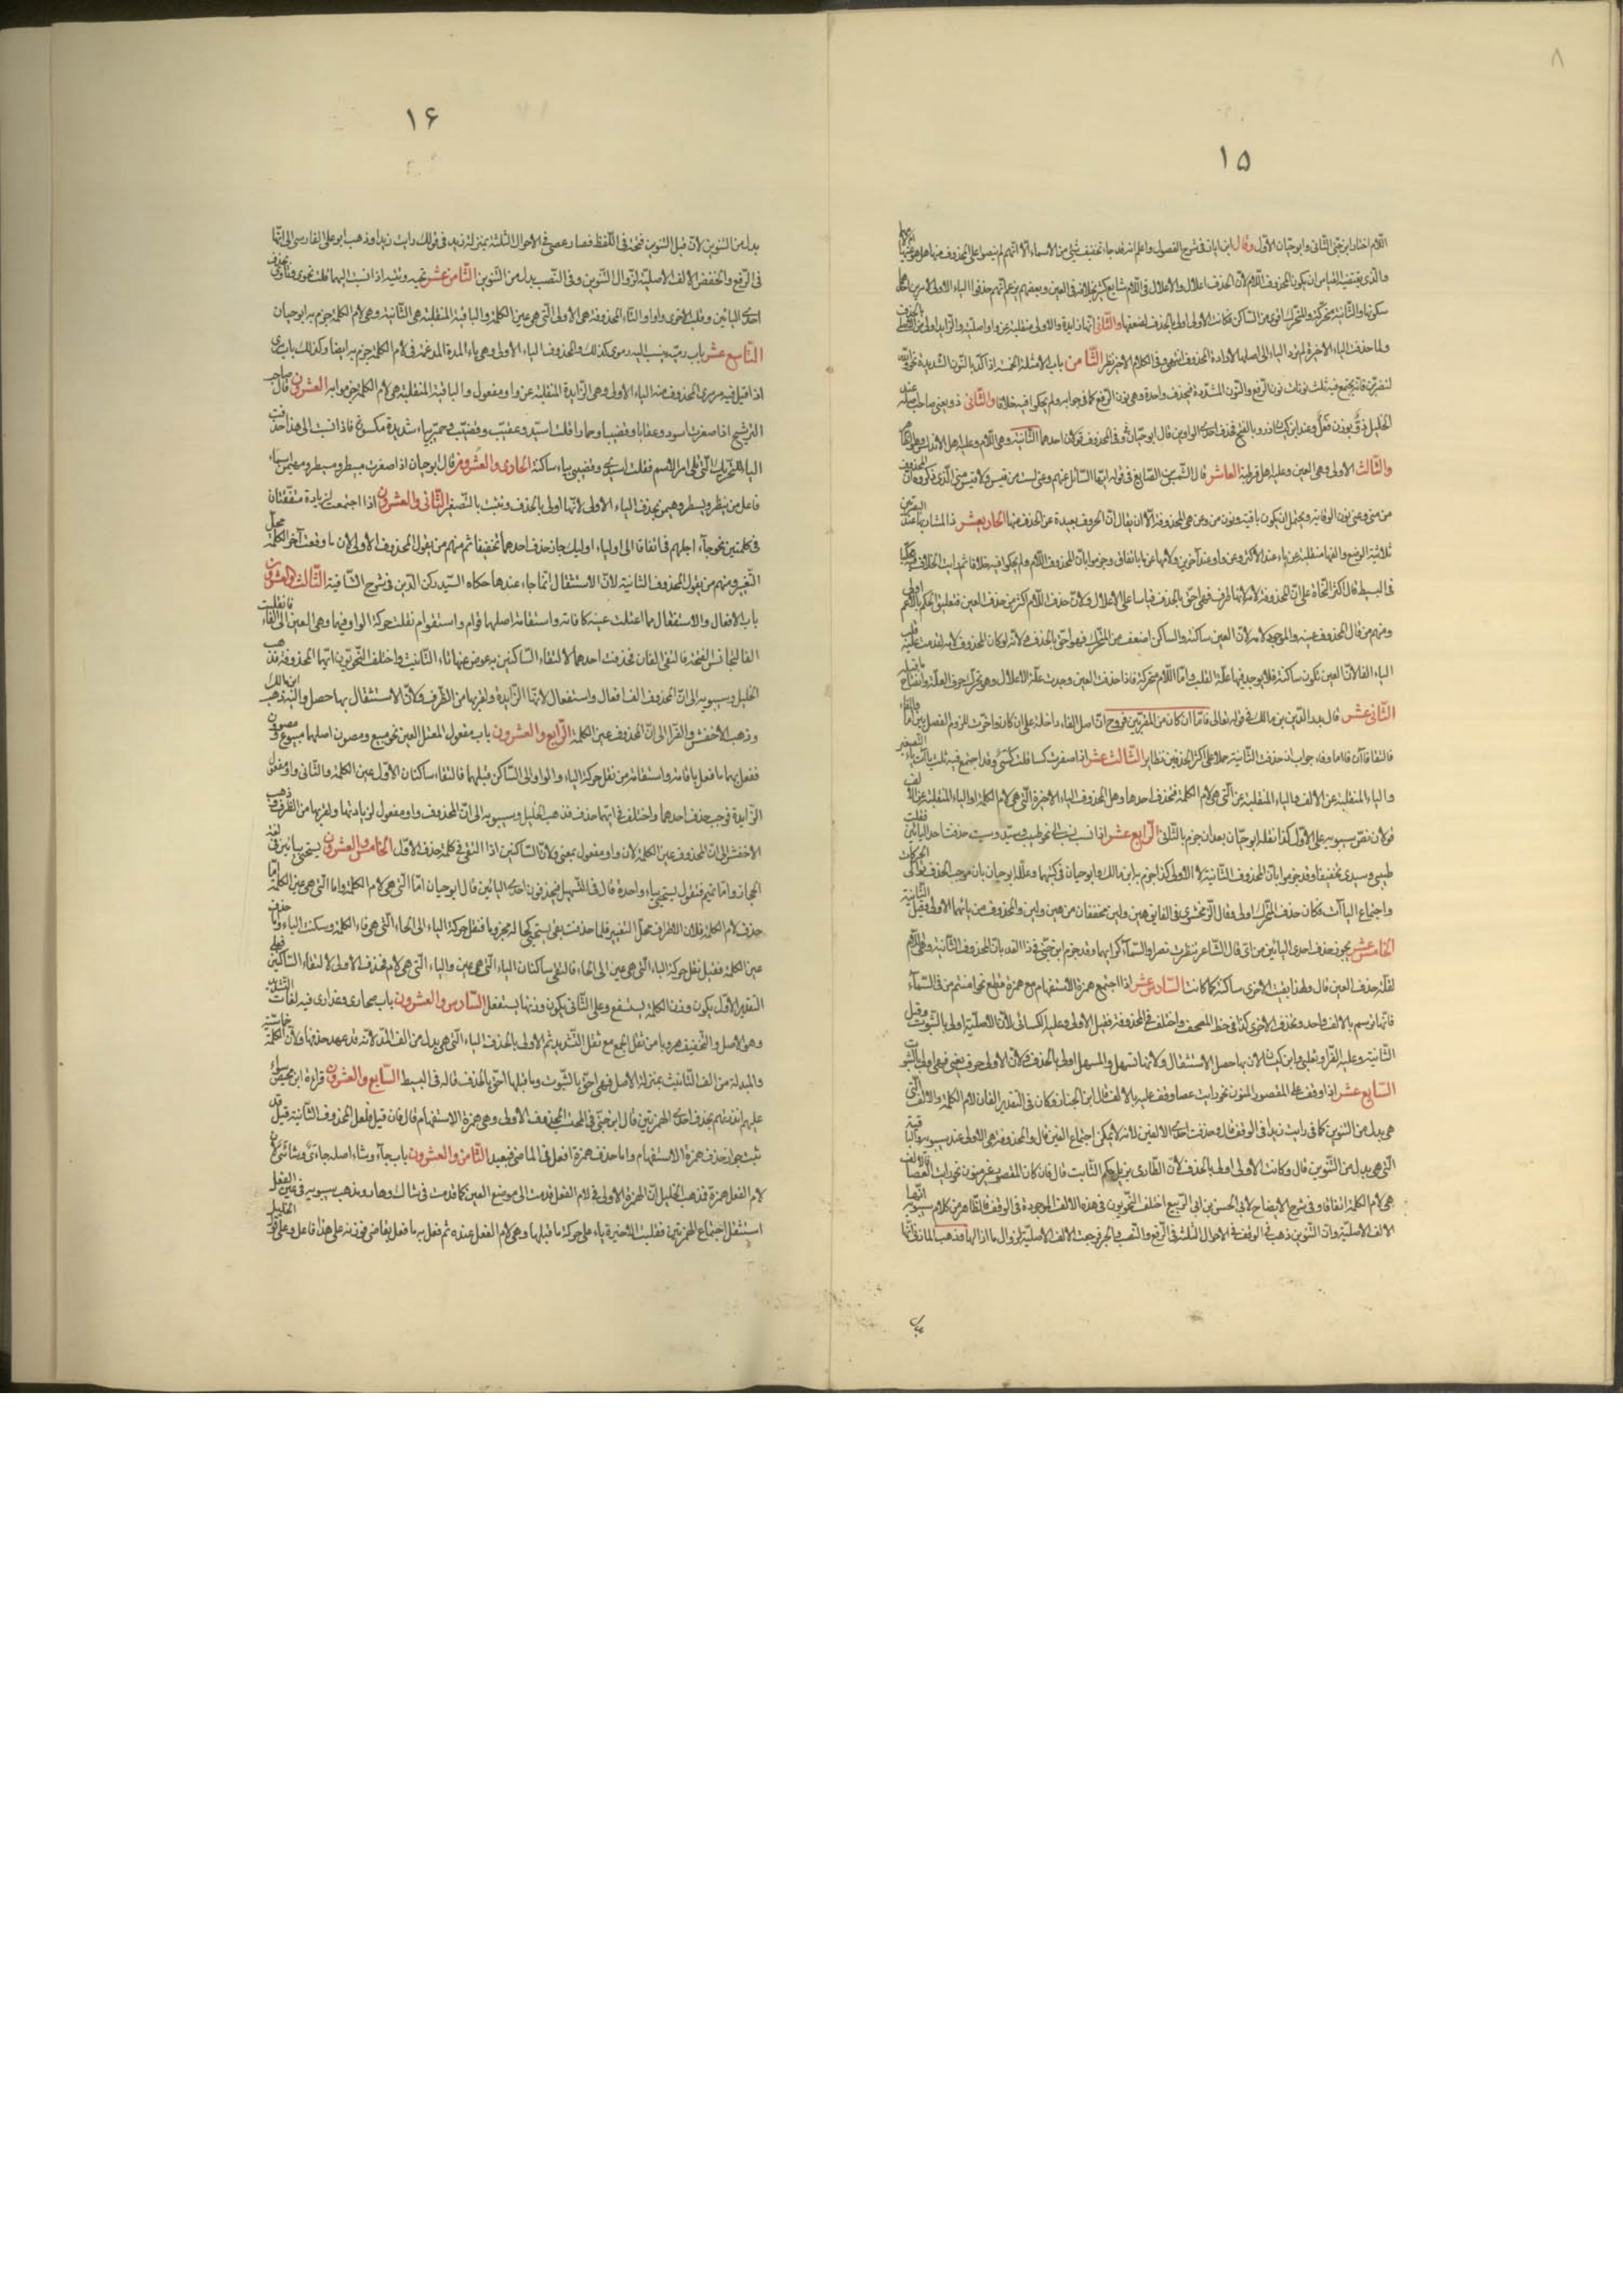 ٨
١٥
اللّام اختاره ابن جنّى الثّانى وابو حيّان الاوّل وقال ابن اياز فى شرح الفصول واعلم انه قد جاء تخفيف شئ من الاسماء الا انّهم لم ينصوا على المحذوف منها هل هو عينها
والذى يقتضيه القياس ان يكون المحذوف اللّام لانّ الحذف اعلال والاعلال فى اللّام شايع كثير بخلافه فى العين وبعضهم يزعم انّهم حذفوا الياء الاولى لامرين
سكونها والثّانية متحرّكة والمتحرّك اقوى من السّاكن فكانت الاولى اولى بالحذف لضعفها والثّانى انّها زايدة والاولى منقلبة عن واو اصليّة والزايد اولى من الاصلى
ولما حذفت الياء الاخيرة لم يرد الياء الى اصلها لارادة المحذوف انتهى وفى الكلام الاخير نظر الثّامن باب الامثلة الخمسة اذا اكّد بالنّون الشديدة نحو والله
لتضربنّ فانّه يجتمع فيه ثلث نونات نون الرّفع والنّون المشدّدة فتحذف واحدة وهى نون الرّفع كما فى جوابه ولم يحكوا فيه خلافا والثّانى ذو بمعنى صاحب
الخليل ذوّ بوزن فعل وعند ابن كيسان ذوو بالفتح فحذف احدى الواوين قال ابو حيّان وفى المحذوف قولان احدهما الثّانية وهى اللّام وعليه اهل الاندلس
والثّالث الاولى وهى العين وعليه اهل قرطبة العاشر قال الشّمس بن الصّايغ فى قوله ايّها السّائل عنهم وعنى لست من قيس ولا قيس منى الّذى ذكروه انّ
من منى وعنى نون الوقاية ويحتمل ان يكون باقية ونون من وعن هى المحذوفة الّا ان يقال انّ الحروف بعيدة عن الحذف منها الحاديعشر ذا المشار بها عند
ثلاثيّة الوضع والفها منقلبة عن ياء عند الاكثر وعن واو عند آخرين ولامها ياء باتفاق وجزموا بانّ المحذوف اللّام ولم يحكوا فيه خلافا ثم رايت الخلاف فيه
فى البسيط قال اكثر النّحاة على انّ المحذوف لامه لانّها طرف فهى احقّ بالحذف قياسا على الاعلال ولانّ حذف اللّام اكثر من حذف العين فتعليق الحكم بالاعم
ومنهم من قال المحذوف عينه والموجود لامه لانّ العين ساكنة والساكن اضعف من المتحرّك فهو احقّ بالحذف ولانّه لو كان المحذوف لامه لعدمت علّة
الياء الفا لانّ العين تكون ساكنة فلا يوجد فيها علّة القلب وامّا اللّام متحركة فاذا حذفت العين وجدت علّة الاعلال وهو تحرّك حرف العلّة وانفتاح
الثّانى عشر قال بدر الدّين بن مالك فى قوله تعالى فامّا ان كان من المقرّبين فروح انّ اصل الفاء داخلة على ان كان واخّرت للزوم الفصل بين امّا
فالتقا فاآن فاء اما وفاء جواب ان حذفت الثّانية حملا على اكثر الحذفين نظاير الثّالث عشر اذا صغرت كساء قلت كسىّ وقد اجتمع فيه ثلث ياآت ياء
والياء المنقلبة عن الالف والياء المنقلبة عن الّتى هى لام الكلمة فتحذف احدها وهل المحذوف الياء الاخيرة الّتى هى لام الكلمة او الياء المنقلبة عن الا
قولان نصّ سيبويه على الاوّل كذا نقله ابو حيّان بعد ان جزم بالثّانى الرّابع عشر اذا نسب الى نحو طيب وسيّد وميت حذفت احد اليائين
طيبى وسيدى تخفيفا وقد جزموا بانّ المحذوف الثّانية لا الاولى كذا جزم به ابن مالك وابو حيان فى كتبهما وعلّله ابو حيان بان موجب الحذف توالى
واجتماع الياآت فكان حذف المتحرّك اولى وقال الزّمخشرى فى الفايق هين ولين مخففان من هيّن وليّن والمحذوف من يائهما الاولى وقيل
الخامس عشر يجوز حذف احدى اليائين من اىّ قال الشّاعر تنظرت نصرا والسّماكين ايهما وقد جزم ابن جنّى فى ذا القد بانّ المحذوف الثّانية وهى اللّام
لقلّة حذف العين قال ولهذا بقيت الاخرى ساكنة كما كانت السّادس عشر اذا اجتمع همزة الاستفهام مع همزة قطع نحو امنتم من فى السّماء
فانّها ترسم بالالف واحد وتحذف الاخرى كذا فى خط المصحف واختلف فى المحذوفة فقيل الاولى وعليه الكسائى لانّ الاصليّة اولى بالثبوت وقيل
الثّانية وعليه الفرّاء وثعلب وابن كيسان لان بها حصل الاستثقال ولانها تسهل والمسهل اولى بالحذف ولانّ الاولى حرف معنى فهى اولى بالثبوت
السّابع عشر اذا وقف على المقصور المنوّن نحو رايت عصا وقف عليه بالالف قال ابن الخبّاز وكان فى التقدير الفان لام الكلمة والالف الّتى
هى بدل من التنوين كما فى رايت زيدا فى الوقف قال فحذفت احدى الالفين لانه لا يمكن اجتماع الفين قال والمحذوفة هى الاولى عند سيبويه والباقية
الّتى هى بدل من التّنوين قال وكانت الاولى اولى بالحذف لانّ الطّارى يزيل حكم الثّابت قال فان كان المقصور غير منون نحو رايت العصا فالالف
هى لام الكلمة اتفاقا وفى شرح الايضاح لابى الحسين بن ابى الرّبيع اختلف النّحويون فى هذه الالف الموجودة فى الوقف فالظاهر من كلام سيبويه انّها
الالف الاصليّة وانّ التّنوين ذهب فى الوقف فى الاحوال الثّلث فى الرّفع والنّصب والجر فرجعت الالف الاصليّة لزوال ما ازالها وذهب المازنى انّها
١۶
بدل من التنوين لانّ قبل التنوين فتحة فى اللّفظ فصار عصى فى الاحوال الثّلثة بمنزلة زيد فى قولك رايت زيدا وذهب ابو على الفارسى الى انّها
فى الرّفع والخفض الالف الاصليّة لزوال التّنوين وفى النّصب بدل من التّنوين الثّامن عشر تحية وتئيّة اذا نسبت اليهما قلت تحوى وتأوى بحذف
احدى اليائين وقلب الاخرى واوا والتّاء المحذوفة هى الاولى الّتى هى عين الكلمة والباقية المنقلبة هى الثّانية وهى لام الكلمة جزم به ابو حيان
التّاسع عشر باب رميّة ينسب اليه رموى كذلك والمحذوف الياء الاولى وهى ياء المدة المدغمة فى لام الكلمة جزم به ايضا وكذلك باب مرمى
اذا قيل فيه مرموى المحذوف منه الياء الاولى وهى الزايدة المنقلبة عن واو مفعول والباقية المنقلبة هى لام الكلمة جزموا به العشرون قال صاحب
الترشيح اذا صغرت اسود وعقابا وقضيبا وحمارا قلت اسيّد وعقيّب وقضيّب وحميّر بياء شديدة مكسورة فاذا نسبت الى هذا حذفت
الياء المتحركة الّتى تلى اخر الاسم فقلت اسيدى وقضيبى بياء ساكنة الحادى والعشرون قال ابو حيان اذا صغرت مبيطر ومسيطر ومهيمن اسماء
فاعل من بيطر وسيطر وهيمن بحذف الياء الاولى لانّها اولى بالحذف وتثبت ياء التّصغير الثّانى والعشرون اذا اجتمعت همزتان متّفقتان
فى كلمتين نحو جاء اجلهم فى اتفاقا الى اولياء اوليك جاز حذف احدهما تخفيفا ثم منهم من يقول المحذوف الاولى لان ما وقعت آخر الكلمة محل
التّغيير ومنهم من يقول المحذوف الثانية لانّ الاستثقال انّما جاء عندها حكاه السّيد ركن الدّين فى شرح الشّافية الثّالث والعشرون
باب الافعال والاستفعال مما اعتلت عينه كاقامة واستقامة اصلهما اقوام واستقوام نقلت حركة الواو فيهما وهى العين الى الفاء فانقلبت
الفا لتجانس الفتحة فالتقى الفان فحذفت احدهما لالتقاء السّاكنين ثم عوض عنها تاء التّانيث واختلف النّحويّون ايّتهما المحذوفة فذهب
الخليل وسيبويه الى انّ المحذوف الف افعال واستفعال لانها الزّايدة ولقربها من الطّرف ولانّ الاستثقال بها حصل واليه ذهب ابن مالك
وذهب الاخفش والفرّا الى انّ المحذوف عين الكلمة الرّابع والعشرون باب مفعول المعتل العين نحو مبيع ومصون اصلهما مبيوع ومصوون
ففعل بهما ما فعل باقامة واستقامة من نقل حركة الياء والواو الى السّاكن قبلهما فالتقاء ساكنان الاوّل عين الكلمة والثّانى واو مفعول
الزّايدة فوجب حذف احدهما واختلف فى ايّهما حذف فذهب الخليل وسيبويه الى انّ المحذوف واو مفعول لزيادتها ولقربها من الطّرف وذهب
الاخفش الى انّ المحذوف عين الكلمة لان واو مفعول لمعنى ولانّ السّاكنين اذا التقى فى كلمة حذف الاوّل الخامس والعشرون يستحيى بيائين فى لغة
الحجاز وامّا تميم فتقول يستحى بياء واحدة قال فى التّسهيل فيحذفون احدى اليائين قال ابو حيان امّا الّتى هى لام الكلمة وامّا الّتى هى عين الكلمة امّا
حذف لام الكلمة فلان الاطراف محلّ التغيير فلما حذفت بقى يستحى كحاله مجزوما فنقل حركة الياء الى الحاء الّتى هى فاء الكلمة وسكنت الياء وامّا حذف
عين الكلمة فقيل نقل حركة الياء الّتى هى عين الى الحاء فالتقى ساكنان الياء الّتى هى عين والياء الّتى هى لام فحذف الاولى لالتقاء السّاكنين فعلى
التقدير الاوّل يكون وزن الكلمة يستفع وعلى الثّانى يكون وزنها يستفل السّادس والعشرون باب صحارى وعذارى فيه لغات التشديد
وهو الاصل والتّخفيف هروبا من ثقل الجمع مع ثقل التّشديد ثم الاولى بالحذف الياء الّتى هى بدل من الف المدّ لانّه قد عهد حذفها ولانّ الكلمة خماسيّة
والمبدلة من الف التّانيث بمنزلة الاصل فهى احقّ بالثّبوت وما قبلها احقّ بالحذف قاله فى البسيط السّابع والعشرون قراءة ابن محيصن سواء
عليهم انذرتهم بحذف احدى الهمزتين قال ابن جنّى فى المحتسب المحذوف الاولى وهى همزة الاستفهام قال فان قيل فلعل المحذوف الثّانية قيل قد
ثبت جواز حذف همزة الاستفهام واما حذف همزة افعل فى الماضى فبعيد الثّامن والعشرون باب جاء وشاء اصله جاءئ وشائئ لان
لام الفعل همزة فذهب الخليل انّ الهمزة الاولى هى لام الفعل قدمت الى موضع العين كما قدمت فى شاك وهار ومذهب سيبويه هى عين الفعل
استثقل اجتماع الهمزتين فقلبت الاخيرة ياء على حركة ما قبلها وهى لام الفعل عنده ثم فعل به ما فعل بقاض فوزنه على هذا فاعل وعلى قول الخليل